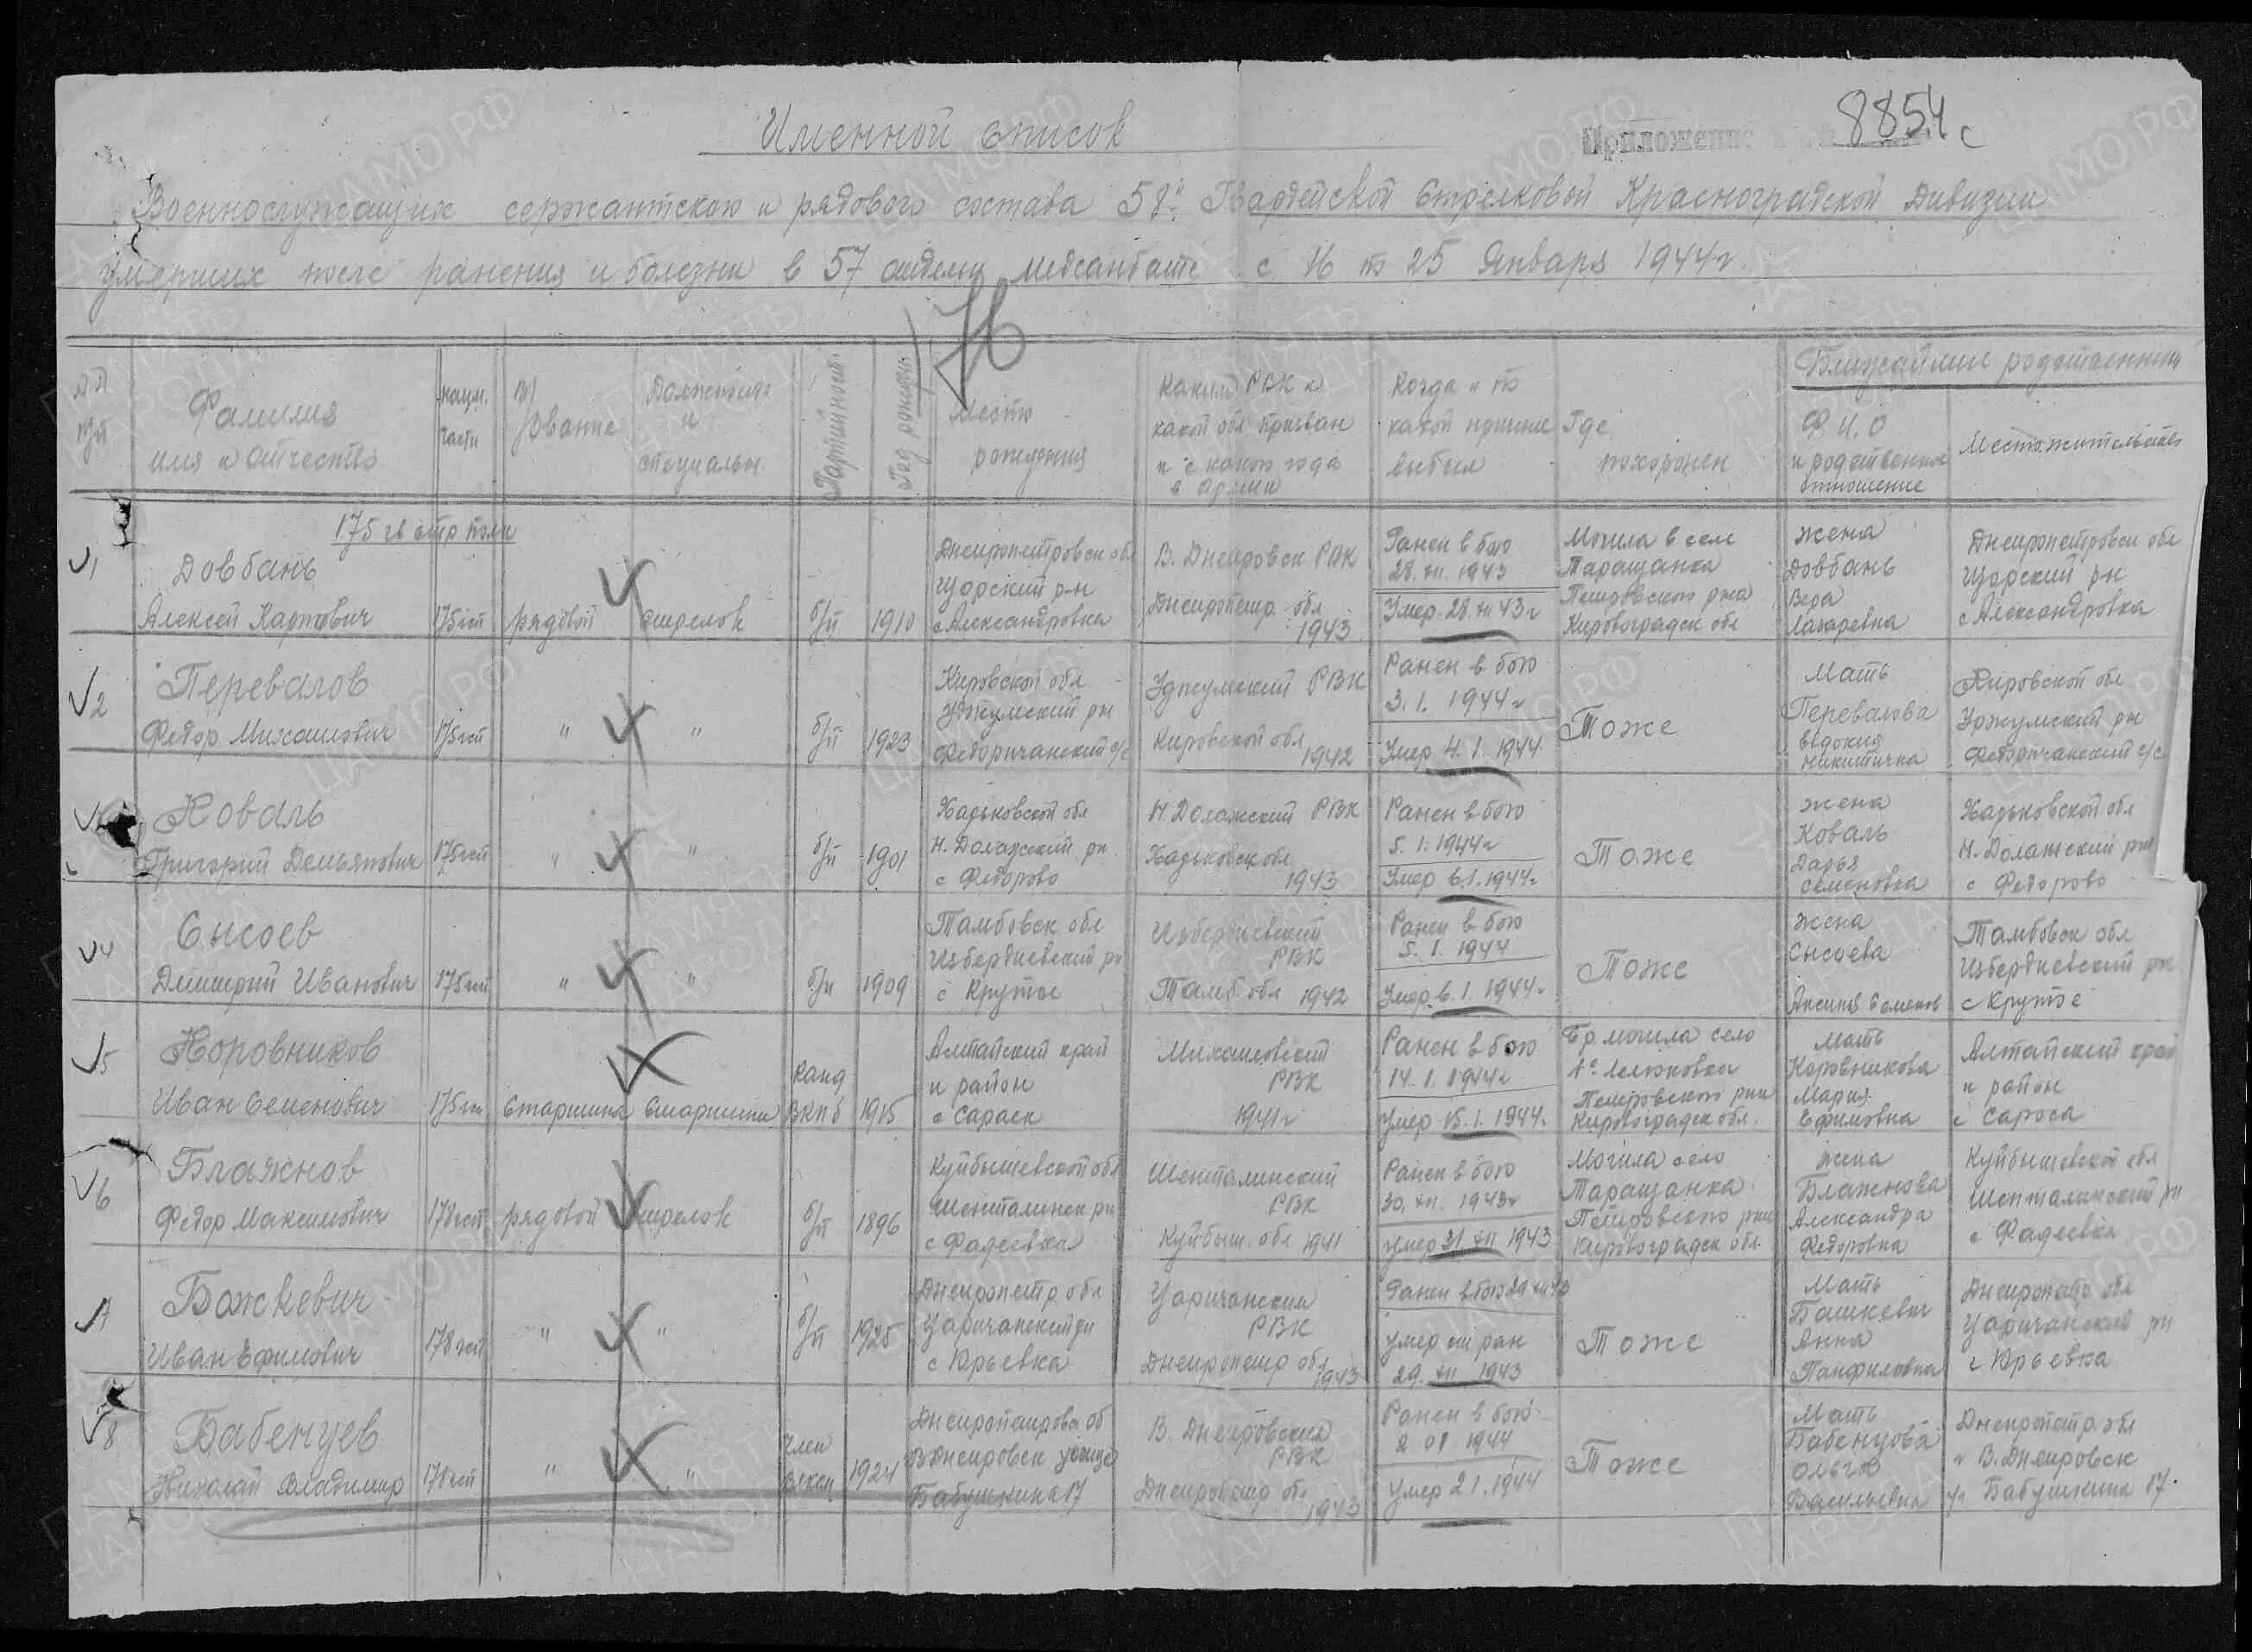 Именной список
Приложение 8854с
Военнослужащих сержантского и рядового состава 58й Гвардейской Стрелковой Красноградской Дивизии
умерших после ранения и болезни в 57 отдельн медсанбате с 16 по 25 Января 1944г.
Фамилия
имя и отчество
наим. части
Звание
Должность и специальн.
Партийность
Год рожден
Место рождения
Каким РВК и какой обл призван и с какого года в армии
Когда и по какой причине выбыл
Где похоронен
Ближайшие родственники
Ф.И.О и родственное отношение
Местожительство
175 гв стр полк
1 Довбань Алексей Карпович 175гсп рядовой стрелок б/п 1910
Днепропетровск обл Щорский р-н с Александровка
В. Днепровск РВК Днепропетр. обл 1943
Ранен в бою 28.XII.1943 Умер 28.XII 43г
Могила в селе Таращанка Петровского рна Кировоградск обл
жена Довбань Вера Лазаревна
Днепропетровск обл Щорский рн с Александровка
2 Перевалов Федор Михаилович 175гсп " " б/п 1923
Кировской обл Уржумский рн Федоричанский с/с
Уджумский РВК Кировской обл 1942
Ранен в бою 3.1.1944г Умер 4.1.1944
Тоже
Мать Перевалова Евдокия Никитична
Кировской обл Уржумский рн Федоричанский с/с
Коваль Григорий Демьянович 175гсп " " б/п 1901
Харьковской обл Н. Долажский рн с Федорово
Н. Долажский РВК Харьковск обл 1943
Ранен в бою 5.1.1944г Умер 6.1.1944г
Тоже
жена Коваль Дарья Семеновна
Харьковской обл Н. Долажский рн с Федорово
4 Сысоев Дмитрий Иванович 175гсп " " б/п 1909
Тамбовск обл Избердиевский рн с Крутое
Избердиевский РВК Тамб. обл 1942
Ранен в бою 5.1.1944 Умер 6.1.1944г
Тоже
жена Сысоева Аксинья Семенов
Тамбовск обл Избердиевский рн с Крутое
5 Коровников Иван Семенович 175гсп Старшина Старшина Канд ВКПб 1915
Алтайский край и район с Сараск
Михаиловский РВК 1941г
Ранен в бою 14.1.1944г Умер 15.1.1944г
Бр. могила село Петровского рни Кировоградск обл.
Мать Коровникова Мария Ефимовна
Алтайский край и район с Сароса
6 Блажнов Федор Максимович 178гсп рядовой стрелок б/п 1896
Куйбышевской обл Шенталинск рн с Фадеевка
Шенталинский РВК Куйбыш. обл 1941
Ранен в бою 30.XII.1943г умер 31 XII 1943
Могила село Таращанка Петровского рни Кировоградск обл.
жена Блажнова Александра Федоровна
Куйбышевской обл Шенталинский рн с Фадеевка
Божкевич Иван Ефимович 178гсп " " б/п 1925
Днепропетр обл Царичанский рн с Юрьевка
Царичанский РВК Днепропетр обл 1943
Ранен в бою 29 XII 43 умер от ран 29.XII 1943
Тоже
Мать Башкевич Анна Панфиловна
Днепропетр обл Царичанский рн с Юрьевка
8 Бабенцев Николай Владимир 178гсп " " Член 1924
Днепропетровск об В Днепровск улица Бабушкина 17
В. Днепровский РВК Днепропетр обл 1943
Ранен в бою 2 01 1944 Умер 2 1.1944
Тоже
Мать Бабенцова Ольга Васильевна
Днепропетр. обл В. Днепровск ул Бабушкина 17.